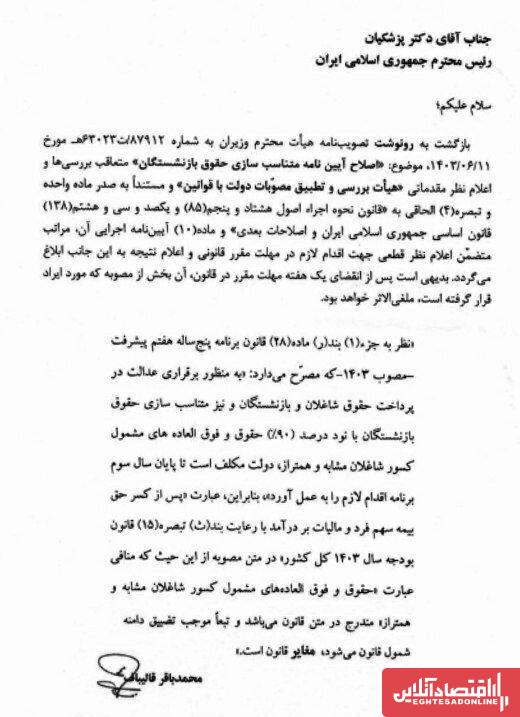 جناب آقای دکتر پزشکیان
رئیس محترم جمهوری اسلامی ایران
سلام علیکم؛
بازگشت به رونوشت تصویب‌نامه هیأت محترم وزیران به شماره ۸۷۹۱۲/ت۶۳۰۲۳هـ مورخ
۱۴۰۳/۰۶/۱۱، موضوع: «اصلاح آیین نامه متناسب سازی حقوق بازنشستگان» متعاقب بررسی‌ها و
اعلام نظر مقدماتی «هیأت بررسی و تطبیق مصوّبات دولت با قوانین» و مستنداً به صدر ماده واحده
و تبصره(۴) الحاقی به «قانون نحوه اجراء اصول هشتاد و پنجم(۸۵) و یکصد و سی و هشتم(۱۳۸)
قانون اساسی جمهوری اسلامی ایران و اصلاحات بعدی» و ماده(۱۰) آیین‌نامه اجرایی آن، مراتب
متضمّن اعلام نظر قطعی جهت اقدام لازم در مهلت مقرر قانونی و اعلام نتیجه به این جانب ابلاغ
می‌گردد. بدیهی است پس از انقضای یک هفته مهلت مقرر در قانون، آن بخش از مصوبه که مورد ایراد
قرار گرفته است، ملغی‌الاثر خواهد بود.
«نظر به جزء(۱) بند(ر) ماده(۲۸) قانون برنامه پنج‌ساله هفتم پیشرفت
-مصوب ۱۴۰۳-که مصرّح می‌دارد: «به منظور برقراری عدالت در
پرداخت حقوق شاغلان و بازنشستگان و نیز متناسب سازی حقوق
بازنشستگان با نود درصد (۹۰٪) حقوق و فوق العاده های مشمول
کسور شاغلان مشابه و همتراز، دولت مکلف است تا پایان سال سوم
برنامه اقدام لازم را به عمل آورد»، بنابراین، عبارت «پس از کسر حق
بیمه سهم فرد و مالیات بر درآمد با رعایت بند(ث) تبصره(۱۵) قانون
بودجه سال ۱۴۰۳ کل کشور» در متن مصوبه از این حیث که منافی
عبارت «حقوق و فوق العاده‌های مشمول کسور شاغلان مشابه و
همتراز» مندرج در متن قانون می‌باشد و تبعاً موجب تضییق دامنه
شمول قانون می‌شود، مغایر قانون است.»
محمدباقر قالیباف
اقتصادآنلاین
EGHTESADONLINE